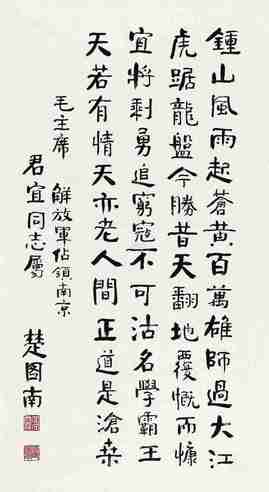 鍾山風雨起蒼黃百萬雄師過大江
虎踞龍盤今勝昔天翻地覆慨而慷
宜將剩勇追窮寇不可沽名學霸王
天若有情天亦老人間正道是滄桒
毛主席 解放軍佔領南京
君宜同志屬
楚图南